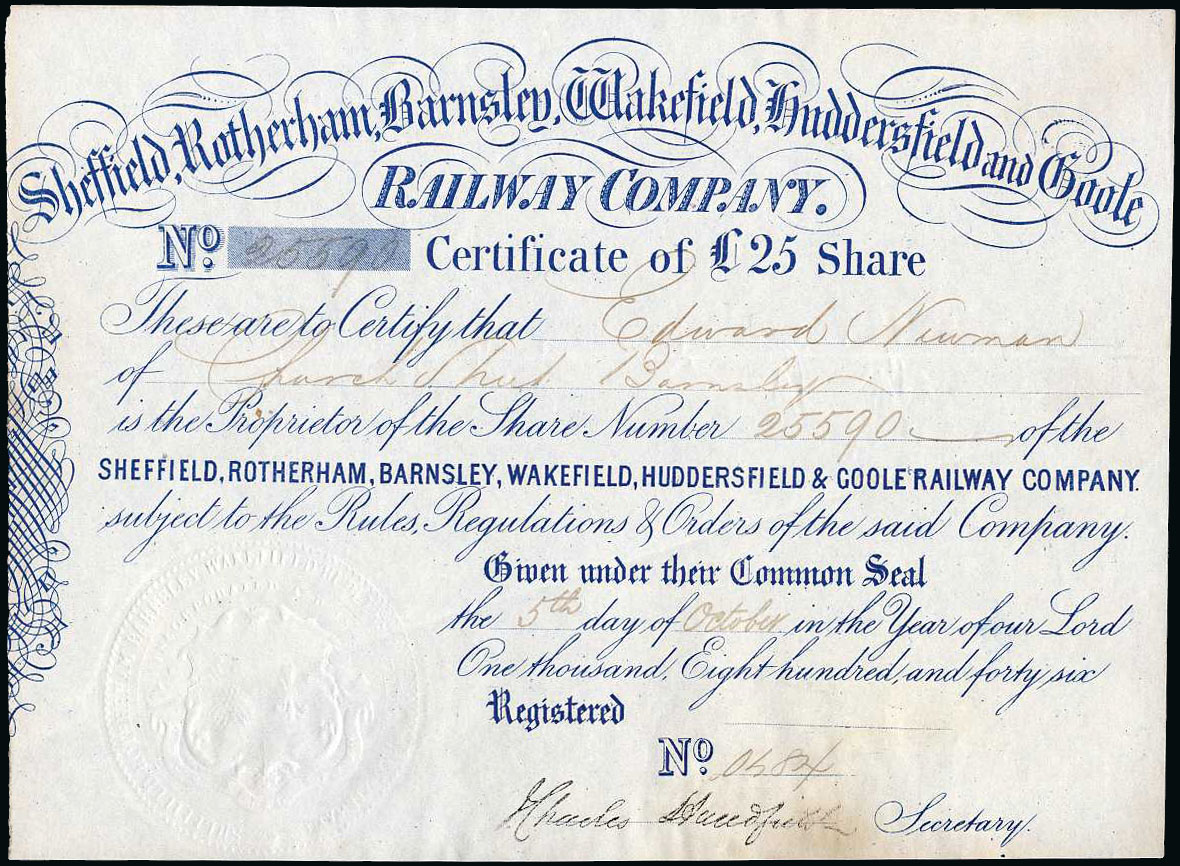 Sheffield, Rotherham, Barnsley, Wakefield, Huddersfield and Goole
RAILWAY COMPANY.
No. 25590 Certificate of £25 Share
These are to Certify that Edward Newman
of Church Street Barnsley
is the Proprietor of the Share Number 25590 of the
SHEFFIELD, ROTHERHAM, BARNSLEY, WAKEFIELD, HUDDERSFIELD & GOOLE RAILWAY COMPANY.
subject to the Rules, Regulations & Orders of the said Company.
Given under their Common Seal
the 5th day of October in the Year of our Lord
One thousand, Eight hundred, and forty six
Registered
No.
Charles Secretary.